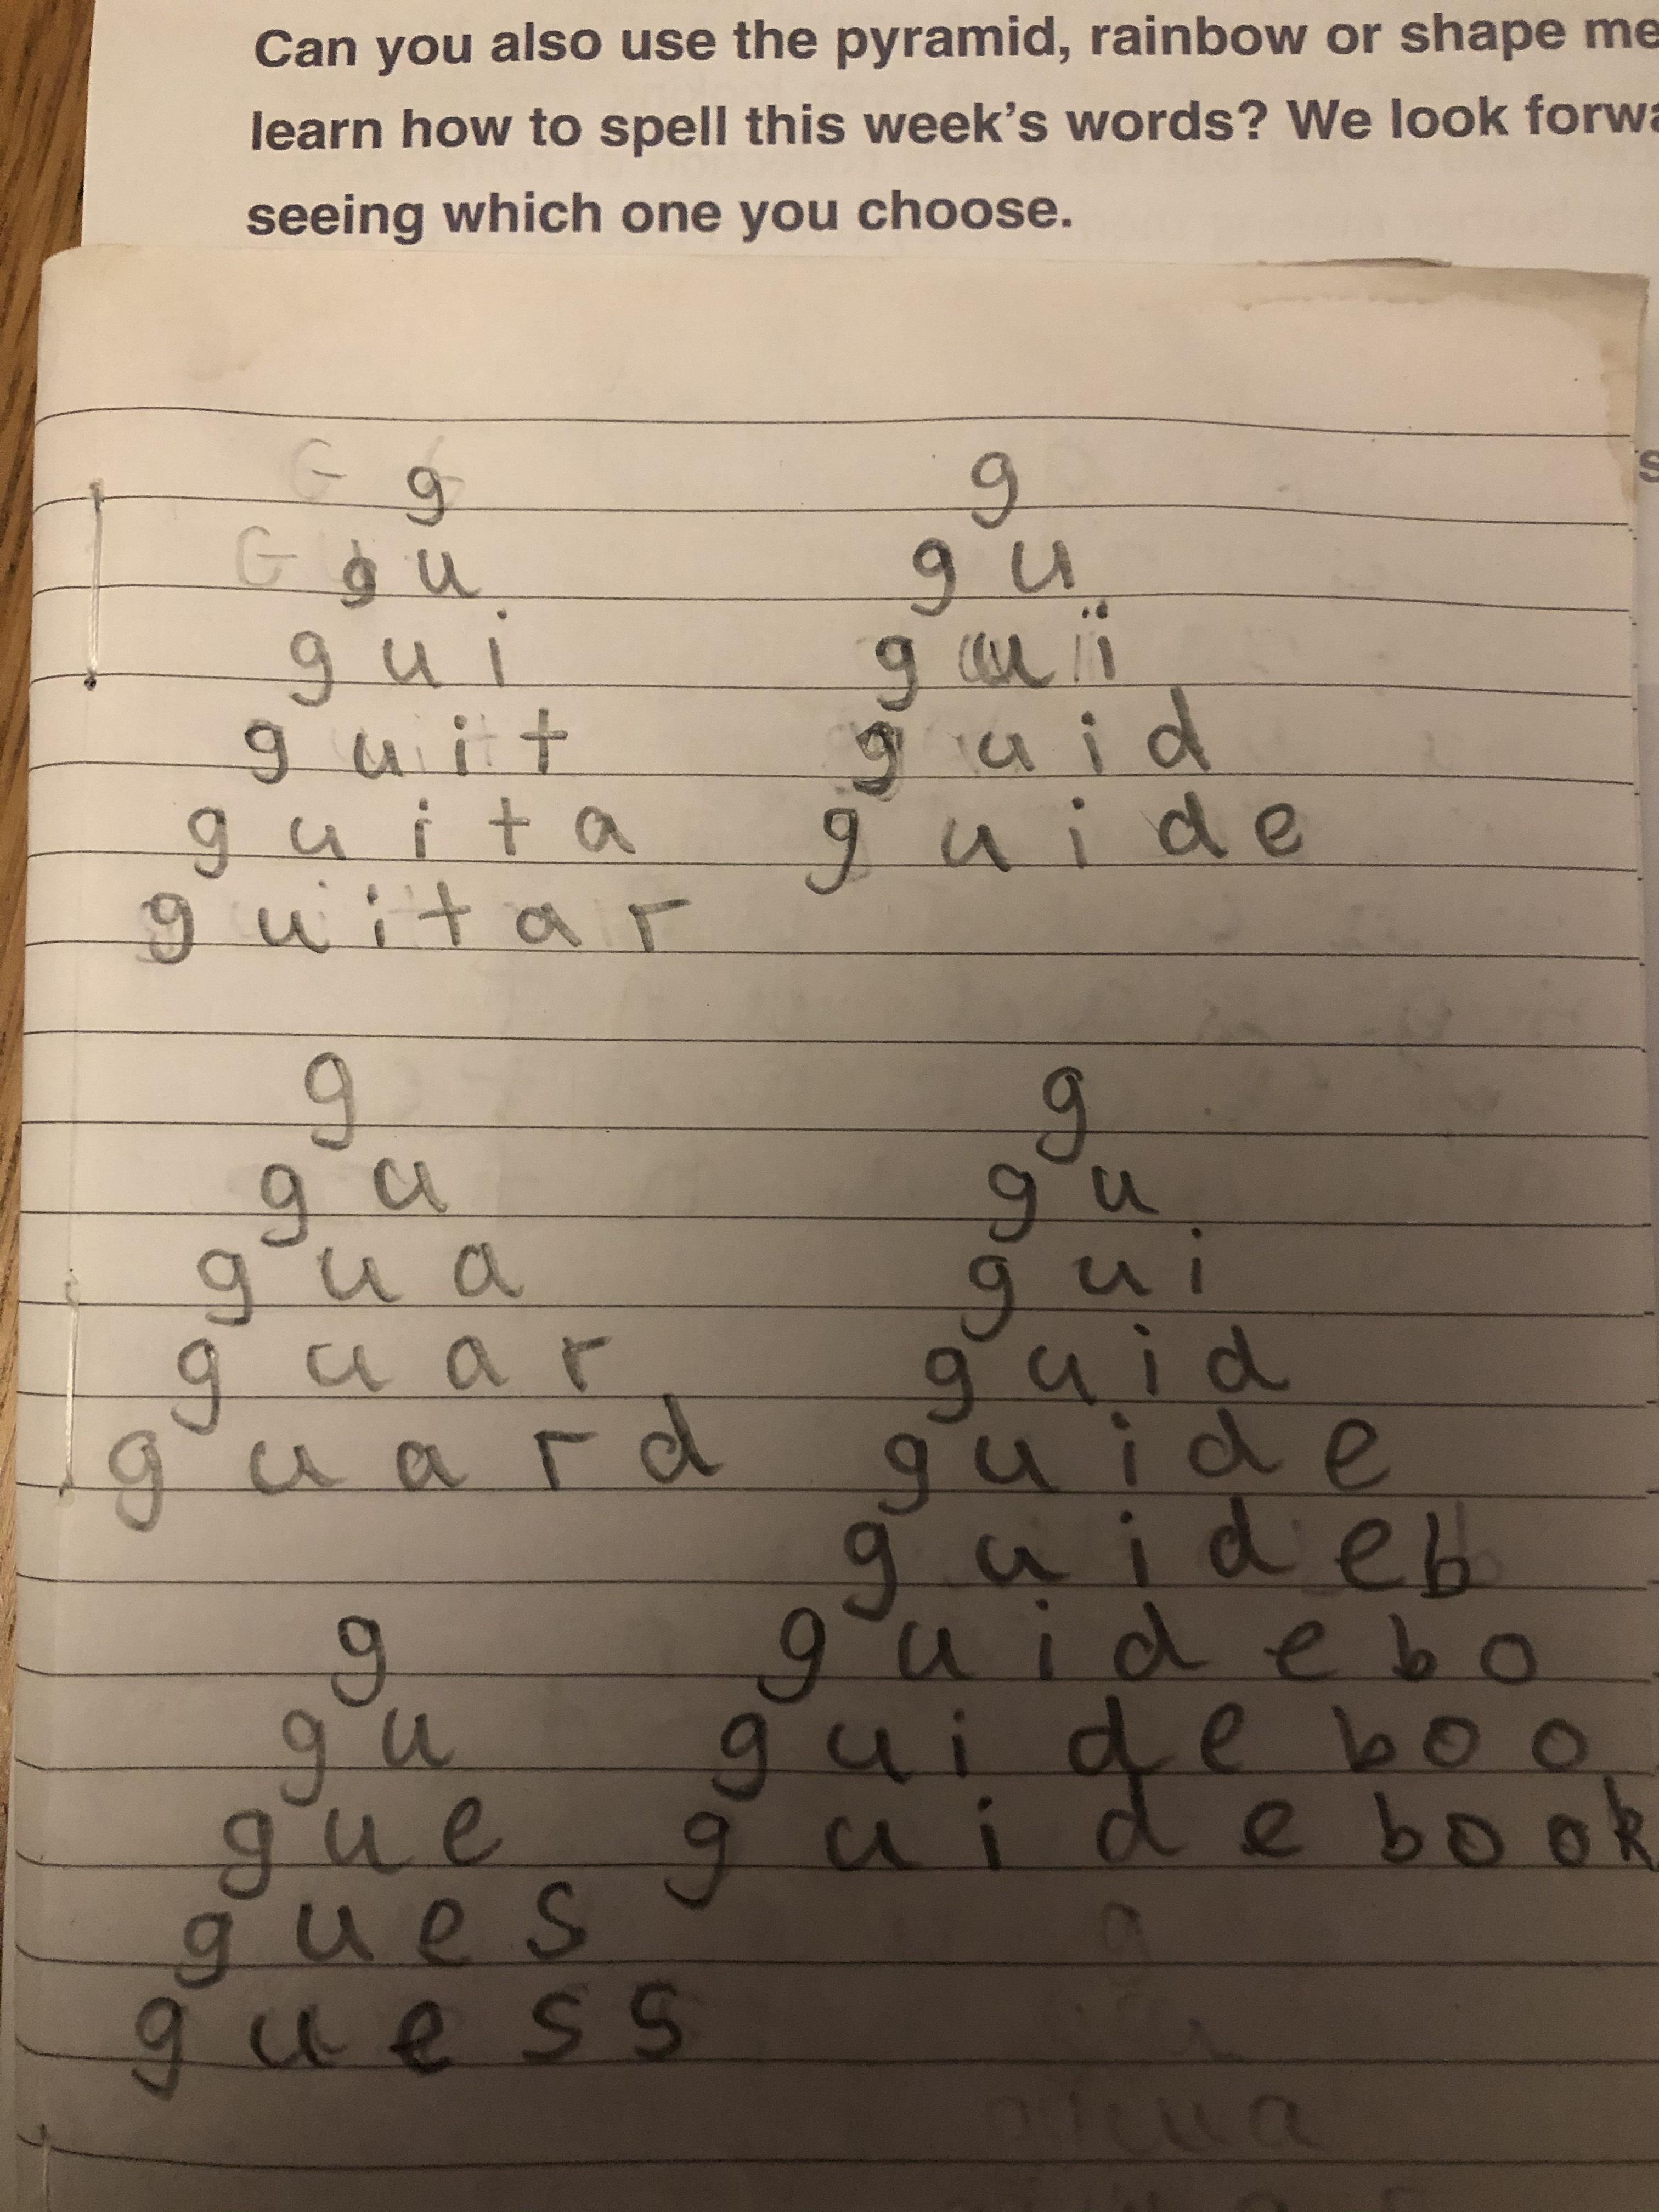 Can you also use the pyramid, rainbow or shape me
learn how to spell this week's words? We look forwa
seeing which one you choose.
g
g u
g u i
g u i t
g u i t a
g u i t a r
g
g u
g u i
g u i d
g u i d e
g
g u
g u a
g u a r
g u a r d
g
g u
g u i
g u i d
g u i d e
g u i d e b
g u i d e b o
g u i d e b o o
g u i d e b o o k
g
g u
g u e
g u e s
g u e s s